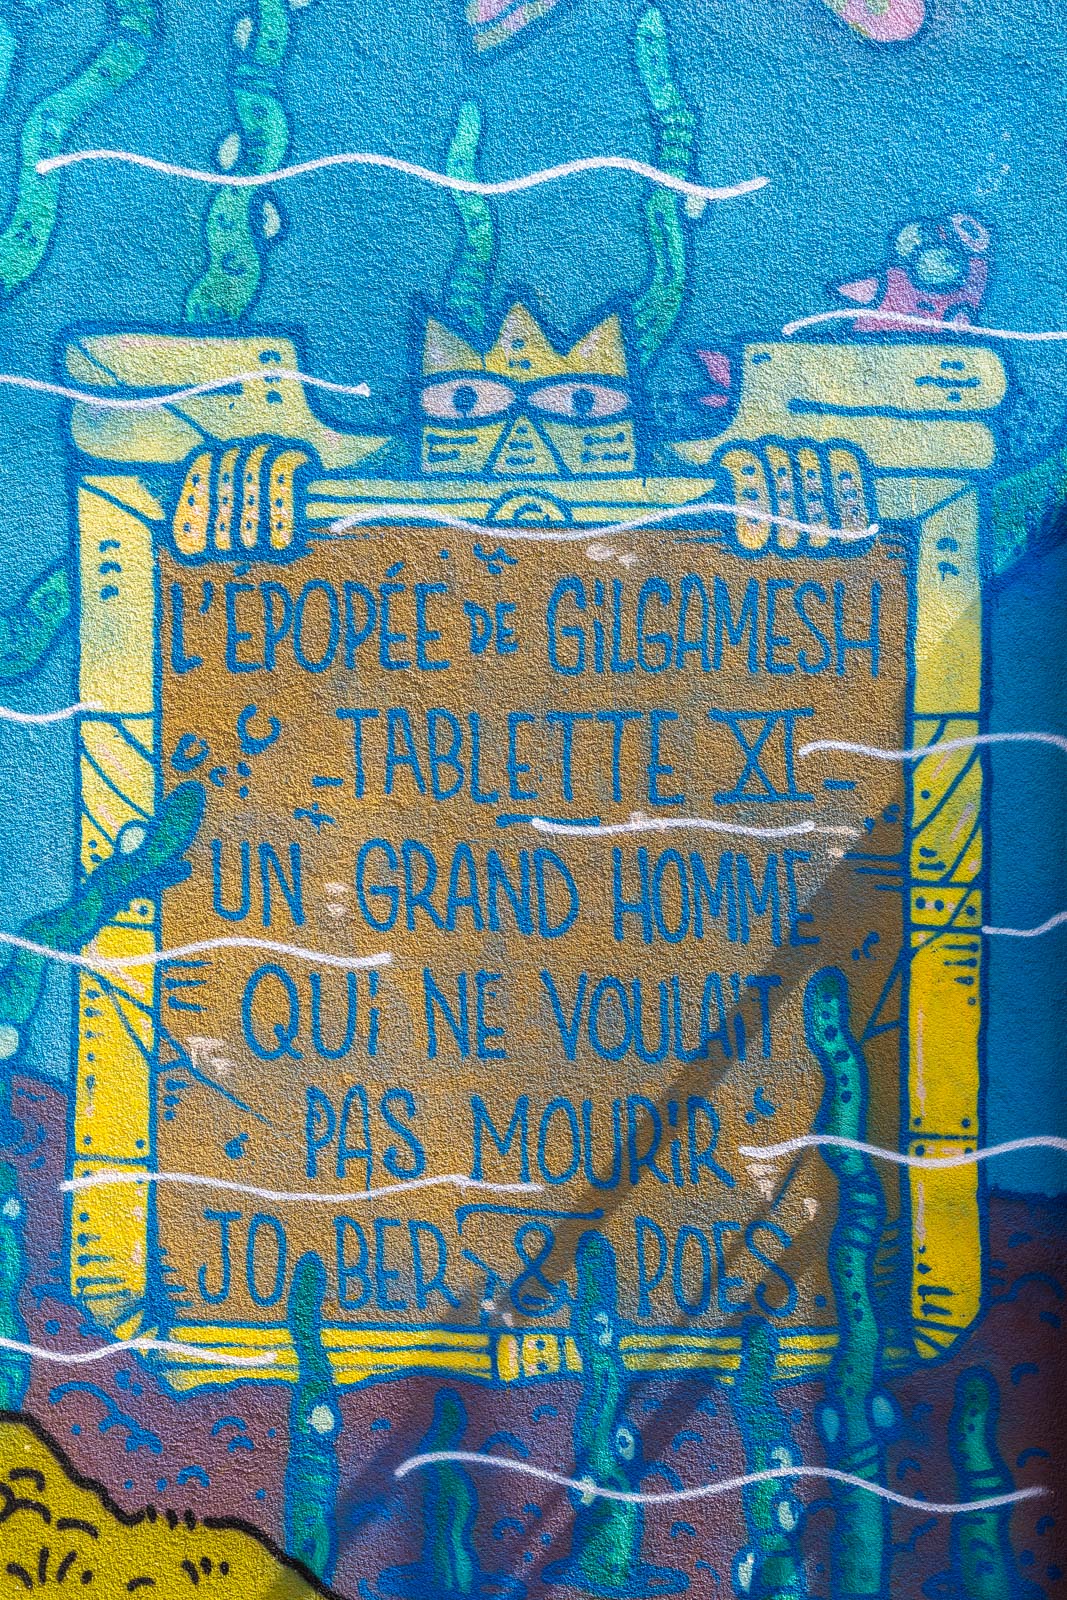 L'ÉPOPÉE DE GiLGAMESH
-TABLETTE XI-
UN GRAND HOMME
QUi NE VOULAiT
PAS MOURiR
JO BER & POES.